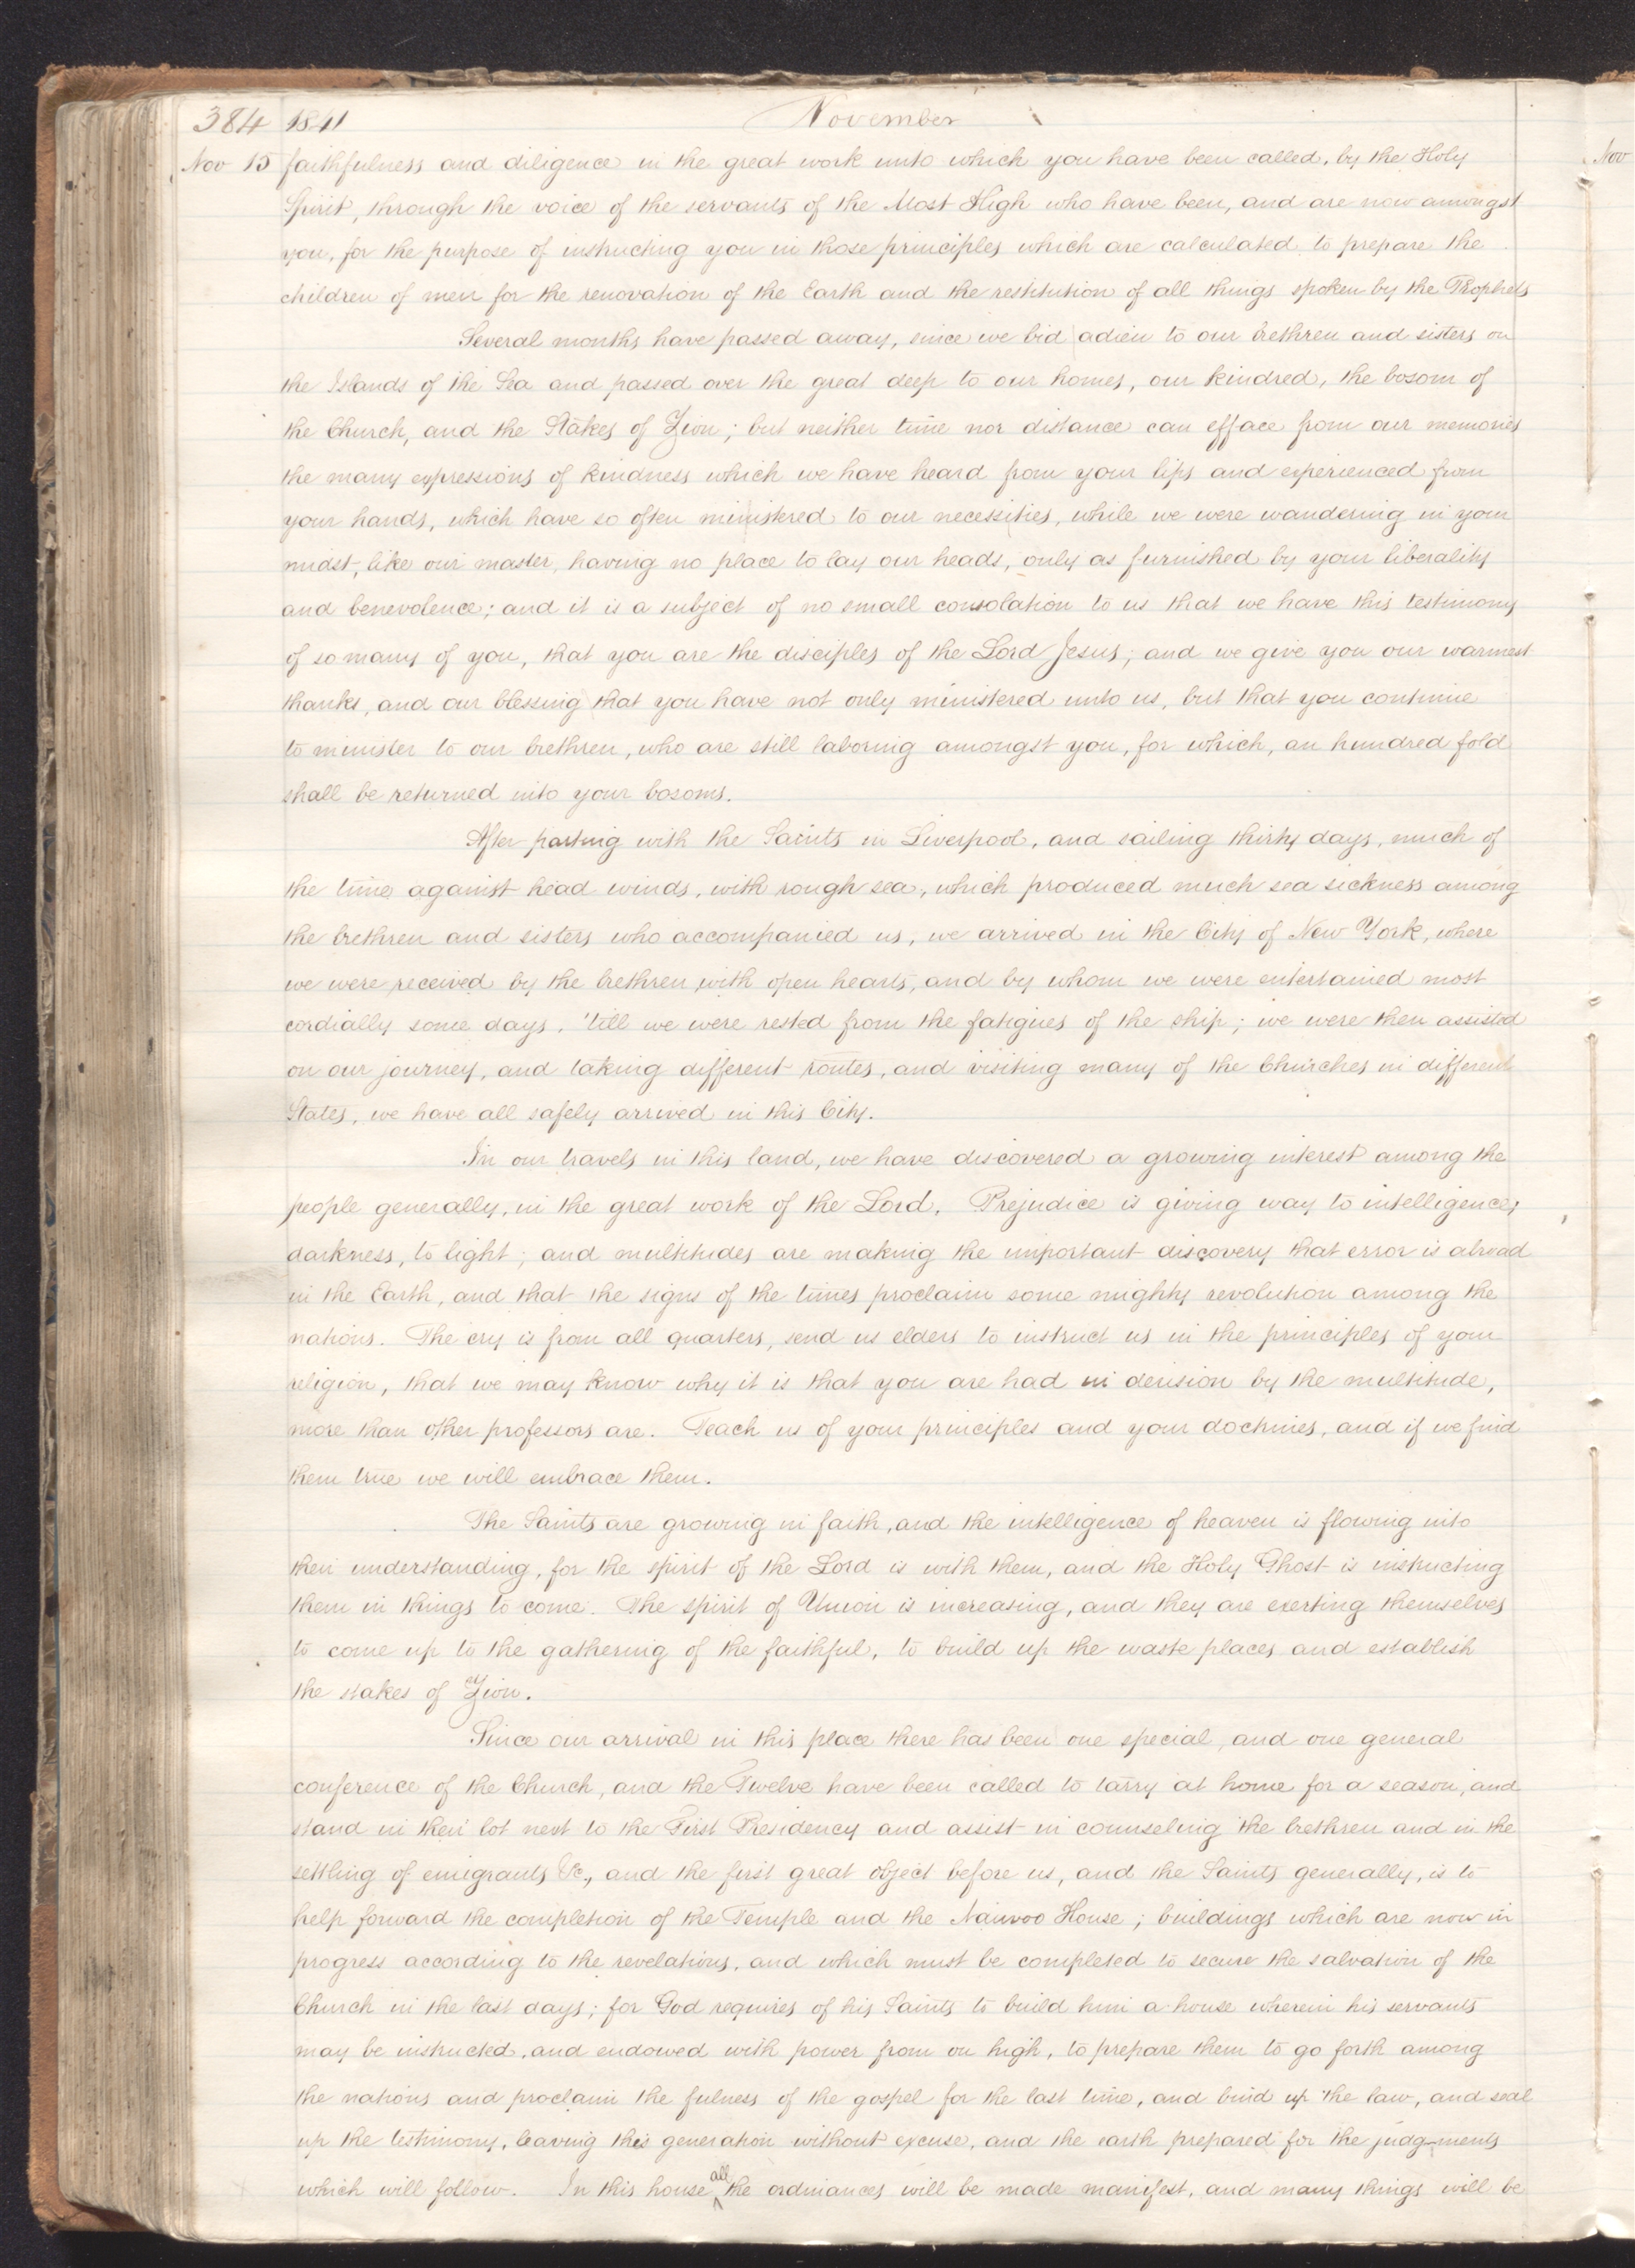 384 1841 November
Nov 15 faithfulness and diligence in the great work unto which you have been called, by the Holy
Spirit, through the voice of the servants of the Most High who have been, and are now amongst
you, for the purpose of instructing you in those principles which are calculated to prepare the
children of men for the renovation of the Earth and the restitution of all things spoken by the Prophets
Several months have passed away, since we bid adieu to our brethren and sisters on
the Islands of the Sea and passed over the great deep to our homes, our kindred, the bosom of
the Church, and the Stakes of Zion; but neither time nor distance can efface from our memories
the many expressions of kindness which we have heard from your lips and experienced from
your hands, which have so often ministered to our necessities, while we were wandering in your
midst, like our master, having no place to lay our heads, only as furnished by your liberality
and benevolence; and it is a subject of no small consolation to us that we have this testimony
of so many of you, that you are the disciples of the Lord Jesus; and we give you our warmest
thanks, and our blessing that you have not only ministered unto us, but that you continue
to minister to our brethren, who are still laboring amongst you, for which, an hundred fold
shall be returned into your bosoms.
After parting with the Saints in Liverpool, and sailing thirty days, much of
the time against head winds, with rough sea, which produced much sea sickness among
the brethren and sisters who accompanied us, we arrived in the City of New York, where
we were received by the brethren with open hearts, and by whom we were entertained most
cordially some days, 'till we were rested from the fatigues of the ship; we were then assisted
on our journey, and taking different routes, and visiting many of the Churches in different
States, we have all safely arrived in this City.
In our travels in this land, we have discovered a growing interest among the
people generally, in the great work of the Lord. Prejudice is giving way to intelligence;
darkness, to light; and multitudes are making the important discovery that error is abroad
in the Earth, and that the signs of the times proclaim some mighty revolution among the
nations. The cry is from all quarters, send us elders to instruct us in the principles of your
religion, that we may know why it is that you are had in derision by the multitude,
more than other professors are. Teach us of your principles and your doctrines, and if we find
them true we will embrace them.
The Saints are growing in faith, and the intelligence of heaven is flowing into
their understanding, for the spirit of the Lord is with them, and the Holy Ghost is instructing
them in things to come. The spirit of Union is increasing, and they are exerting themselves
to come up to the gathering of the faithful, to build up the waste places and establish
the stakes of Zion.
Since our arrival in this place there has been one special, and one general
conference of the Church, and the Twelve have been called to tarry at home for a season, and
stand in their lot next to the First Presidency and assist in counseling the brethren and in the
settling of emigrants &c., and the first great object before us, and the Saints generally, is to
help forward the completion of the Temple and the Nauvoo House; buildings which are now in
progress according to the revelations, and which must be completed to secure the salvation of the
Church in the last days; for God requires of his Saints to build him a house wherein his servants
may be instructed, and endowed with power from on high, to prepare them to go forth among
the nations and proclaim the fulness of the gospel for the last time, and bind up the law, and seal
up the testimony, leaving this generation without excuse, and the earth prepared for the judgments
which will follow. In this house all the ordinances will be made manifest, and many things will be
Nov